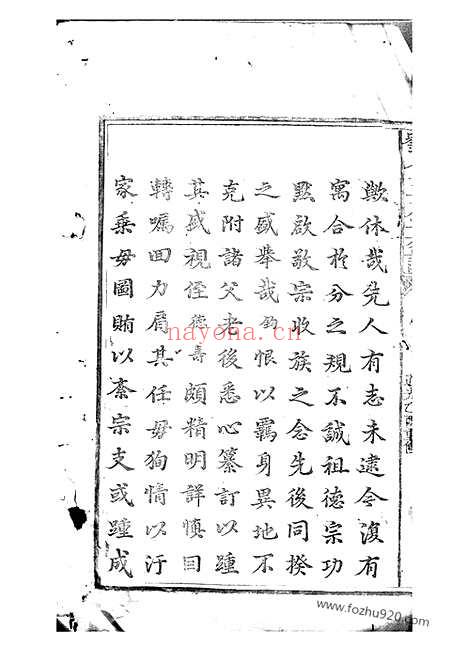 歟休哉先人有志未逮今復有
寓合於分之規不誠祖德宗功
默啟敬宗收族之念先後同揆
之盛舉哉鈞恨以羈身異地不
克附諸父老後悉心纂訂以踵
其盛視侄德壽頗精明詳慎因
轉囑回力肩其任毋狥情以汙
家乗毋圖賄以紊宗支或踵成
nayona.cn
www.fozhu920.com